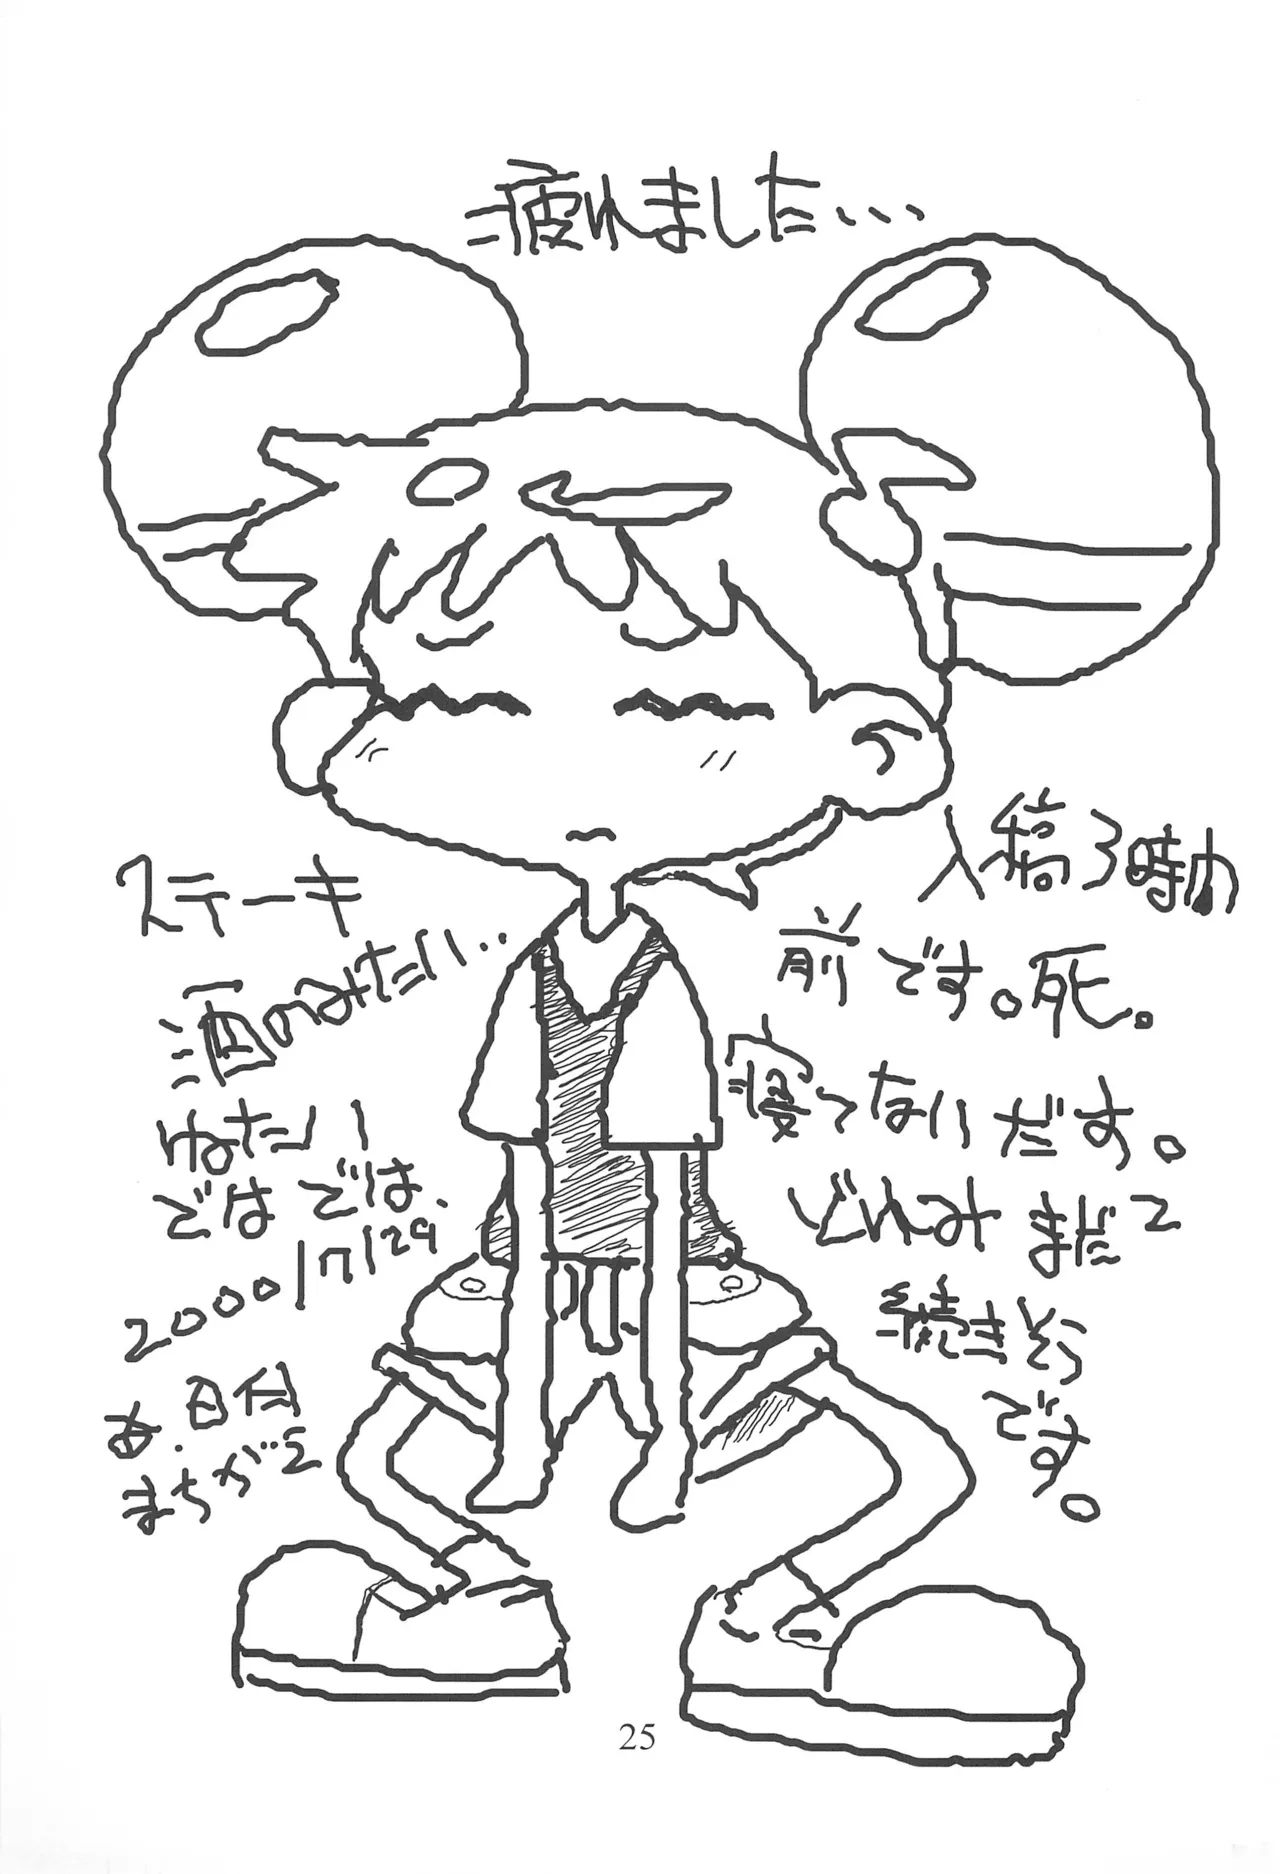 疲れました…
入稿3時間
前です。死。
寝てないだす。
どれみまだ
続きそう
です。
ステーキ
酒のみたい…
ねたい
ではでは、
2000/7/29
あ、日付
まちがえ
25